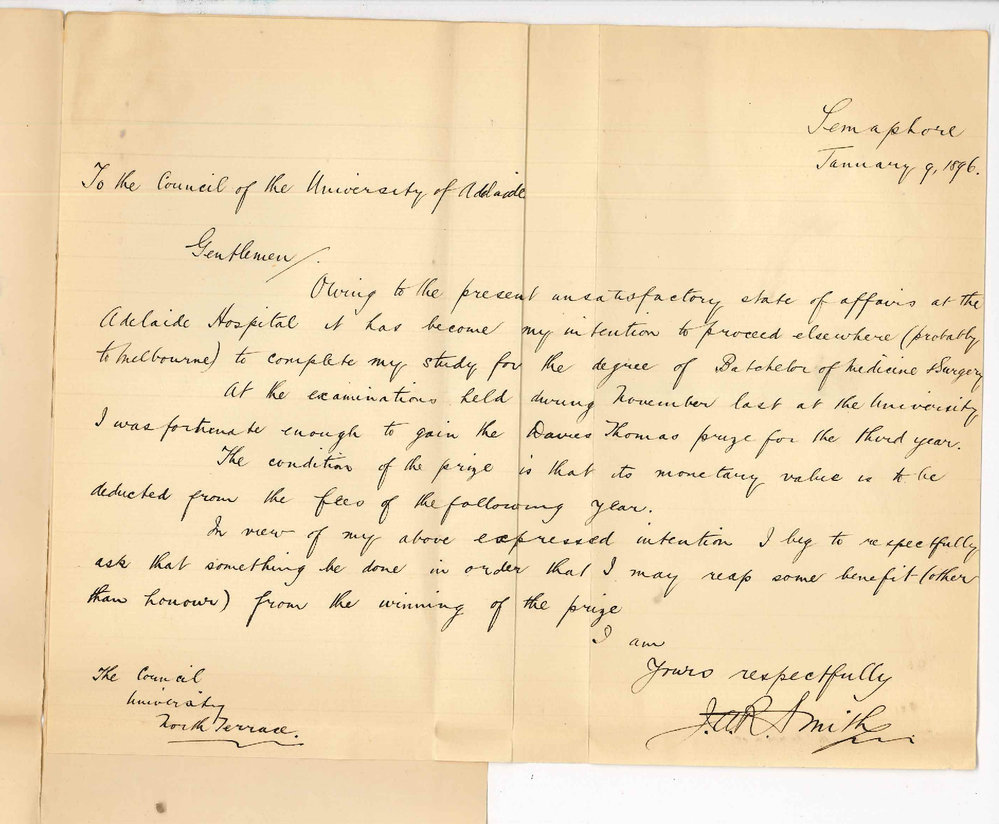 Semaphore
January 9, 1896.
To the Council of the University of Adelaide
Gentlemen/
Owing to the present unsatisfactory state of affairs at the
Adelaide Hospital it has become my intention to proceed elsewhere (probably
to Melbourne) to complete my study for the degree of Batchelor of Medicine & Surgery
At the examinations held during November last at the University
I was fortunate enough to gain the Davies Thomas prize for the third year.
The condition of the prize is that its monetary value is to be
deducted from the fees of the following year.
In view of my above expressed intention I beg to respectfully
ask that something be done in order that I may reap some benefit (other
than honour) from the winning of the prize
I am
Yours respectfully
J.A.R. Smith
The Council
University
North Terrace.